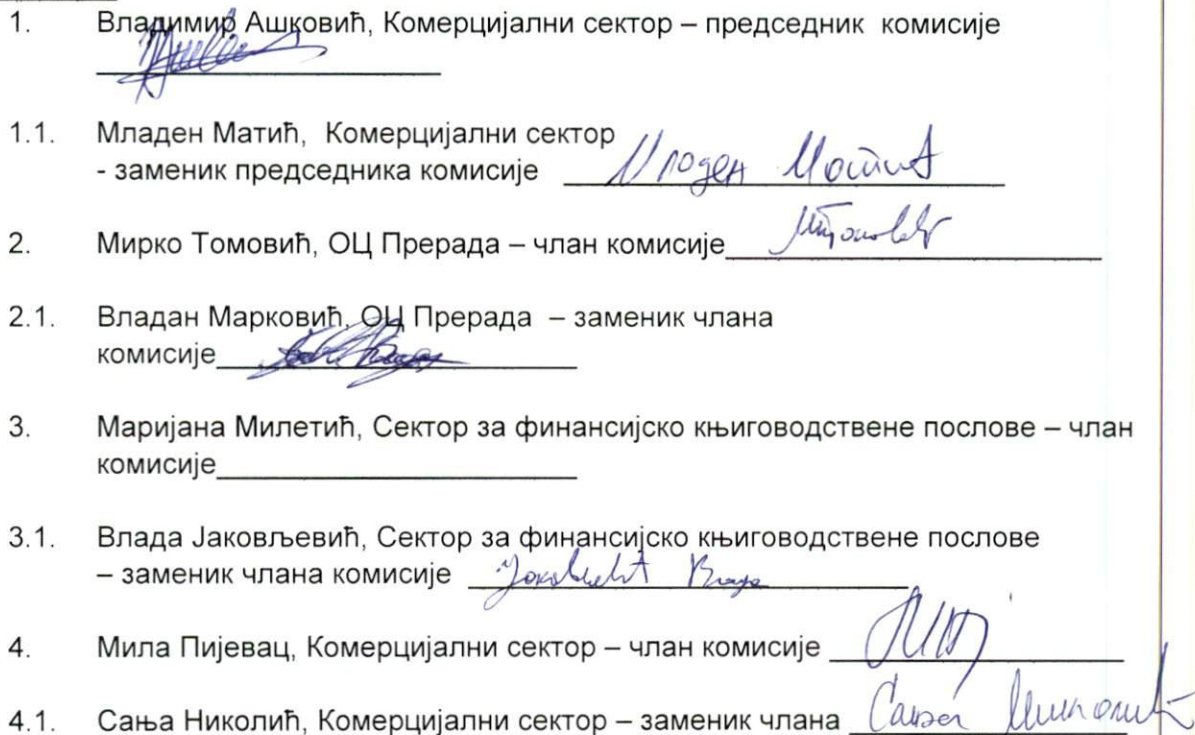 1. Владимир Ашковић, Комерцијални сектор – председник комисије
1.1. Младен Матић, Комерцијални сектор
- заменик председника комисије Младен Матић
2. Мирко Томовић, ОЦ Прерада – члан комисије
2.1. Владан Марковић, ОЦ Прерада – заменик члана
комисије
3. Маријана Милетић, Сектор за финансијско књиговодствене послове – члан
комисије
3.1. Влада Јаковљевић, Сектор за финансијско књиговодствене послове
– заменик члана комисије Јаковљевић Влада
4. Мила Пијевац, Комерцијални сектор – члан комисије
4.1. Сања Николић, Комерцијални сектор – заменик члана Сања Николић